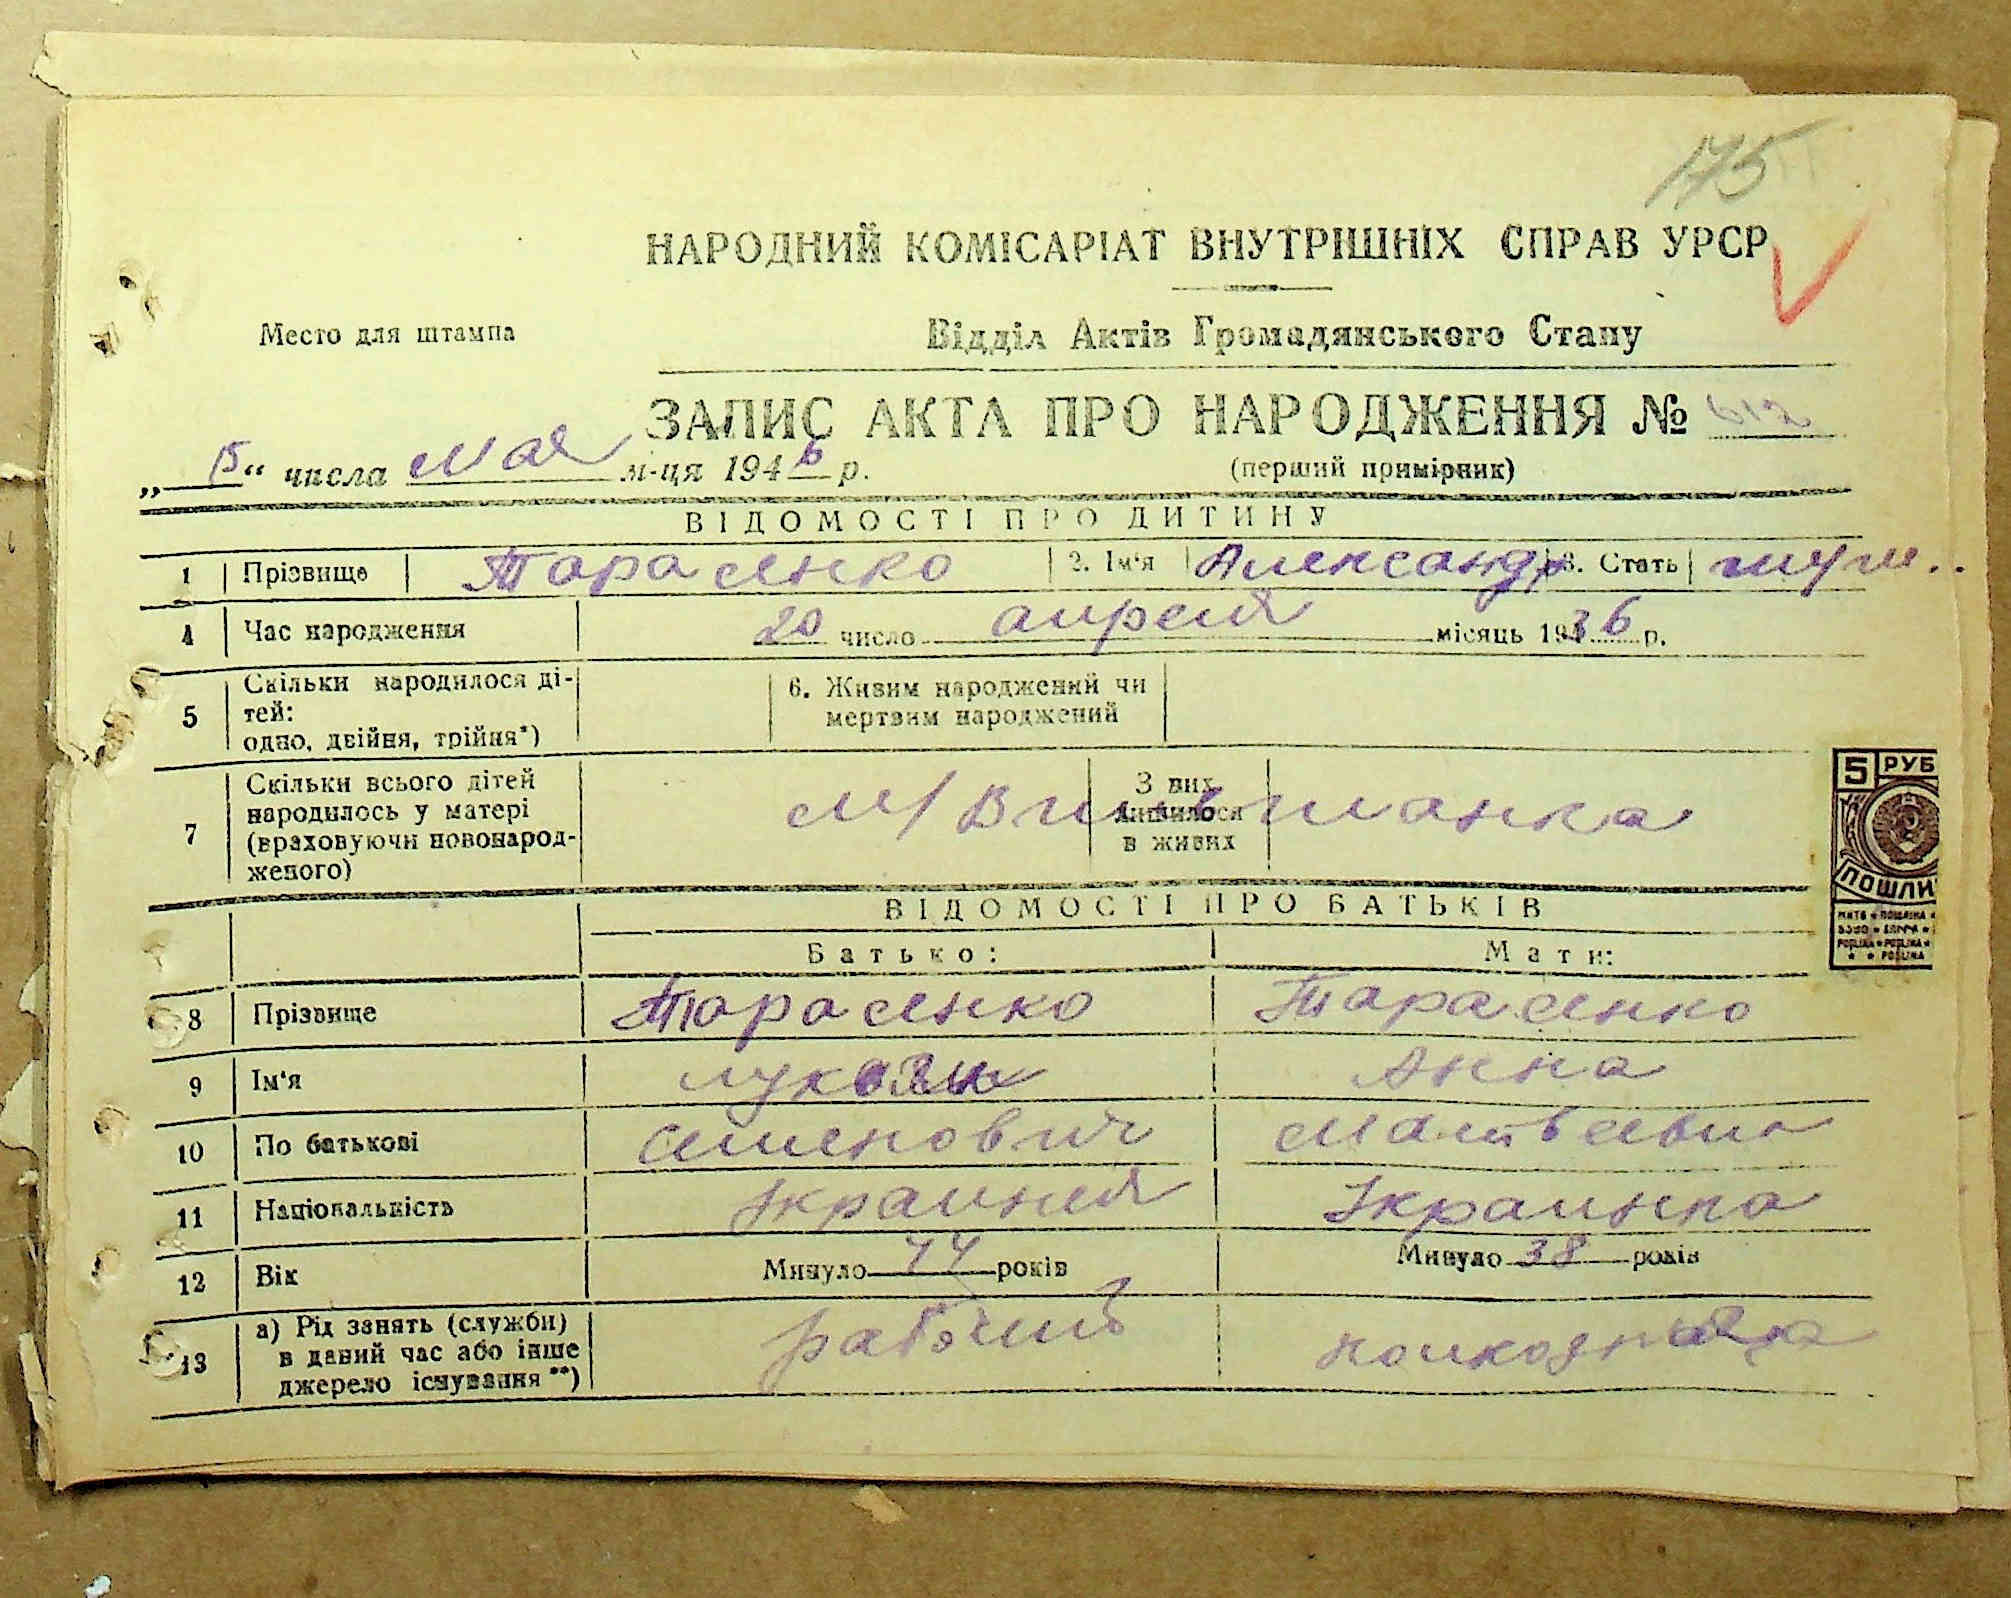 175
НАРОДНИЙ КОМІСАРІАТ ВНУТРІШНІХ СПРАВ УРСР
Место для штампа
Відділ Актів Громадянського Стану
ЗАПИС АКТА ПРО НАРОДЖЕННЯ № 612
„15“ числа мая м-ця 1946 р.
(перший примірник)
ВІДОМОСТІ ПРО ДИТИНУ
1 Прізвище Тарасенко 2. Ім'я Александр 3. Стать муж.
4 Час народження 20 число апреля місяць 1936 р.
5 Скільки народилося ді-
тей:
одно, двійня, трійня*)
6. Живим народжений чи
мертвим народжений
7 Скільки всього дітей
народилось у матері
(враховуючи новонарод-
женого)
З них
лишилося
в живих
м/
ВІДОМОСТІ ПРО БАТЬКІВ
Батько: Мати:
8 Прізвище Тарасенко Тарасенко
9 Ім'я Анна
10 По батькові Семенович Матвеевна
11 Національність Украинец Украинка
12 Вік Минуло 44 років Минуло 38 років
13 а) Рід занять (служби)
в даний час або інше
джерело існування **)
рабочий
5 РУБ
ПОШЛИ